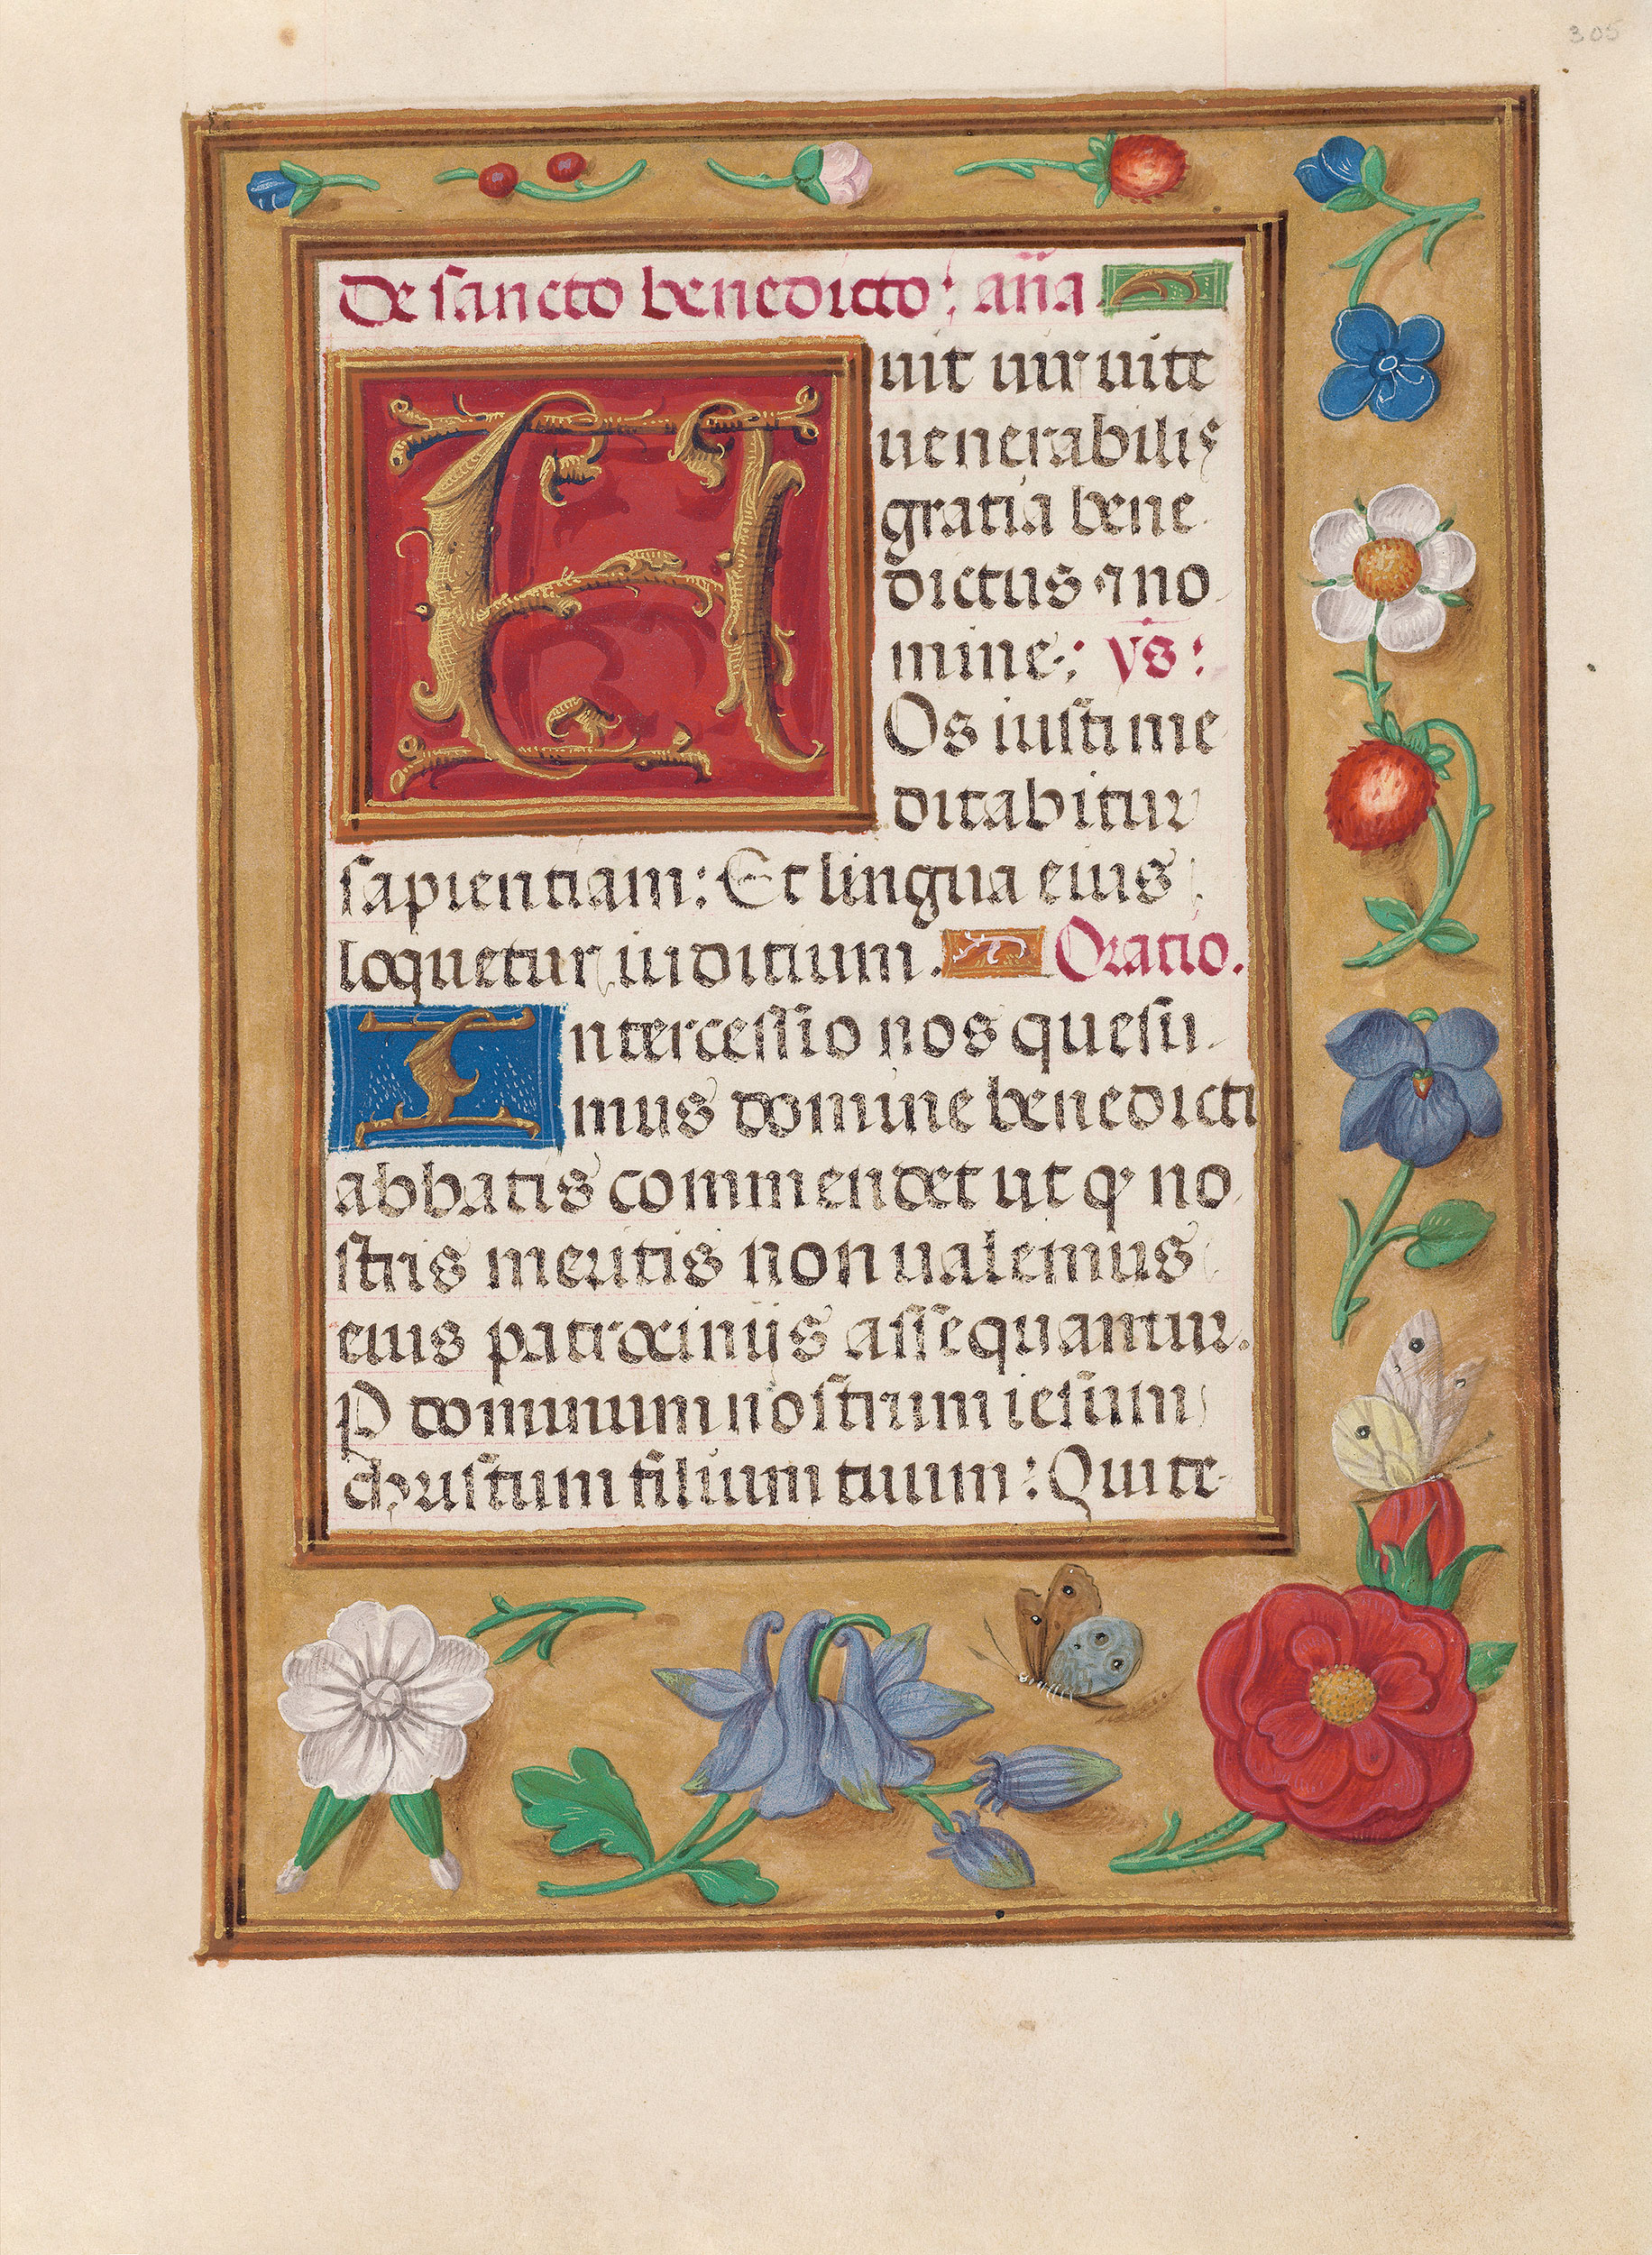 305
De sancto benedicto: ana
Fuit uir uite
uenerabilis
gratia bene
dictus ⁊ no
mine: vs:
Os iusti me
ditabitur
sapientiam: Et lingua eius
loquetur iuditium. Oratio.
Intercessio nos quesu
mus domine benedicti
abbatis commendet ut q no
stris meritis non ualemus
eius patrocinijs assequamur.
P dominum nostrum iesum
christum filium tuum: Qui te